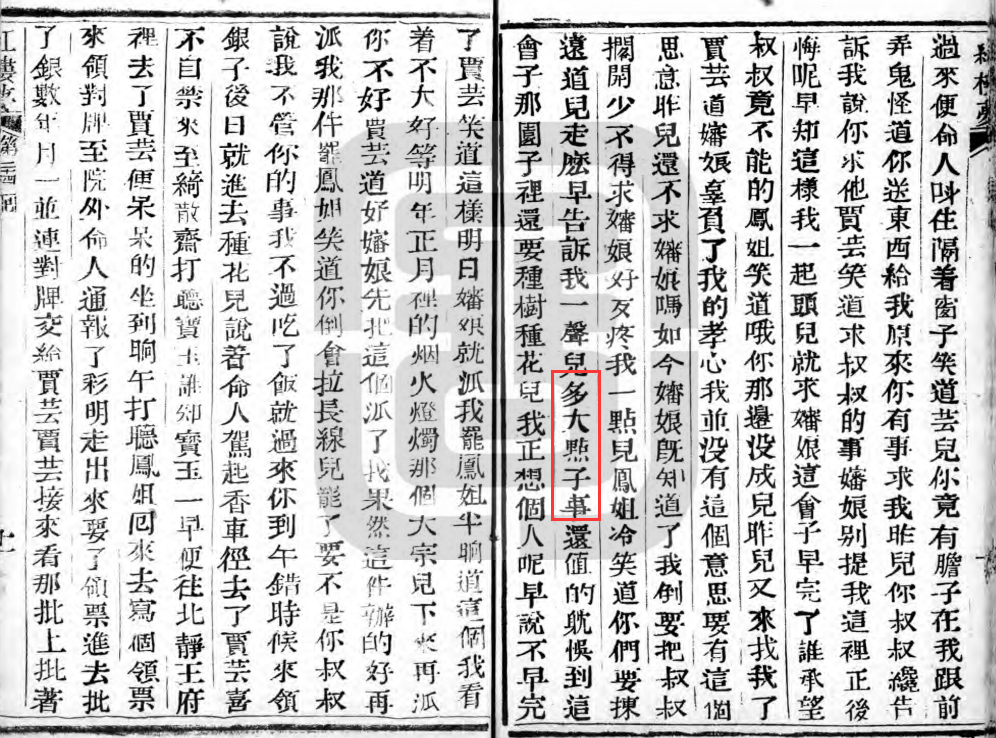 紅樓夢
過來便命人呌住隔着窗子笑道芸兒你竟有膽子在我跟前
弄鬼怪道你送東西給我原來你有事求我昨兒你叔叔纔告
訴我說你求他賈芸笑道求叔叔的事嬸娘别提我這裡正後
悔呢早知這樣我一起頭兒就求嬸娘這會子早完了誰承望
叔叔竟不能的鳳姐笑道哦你那邊没成兒昨兒又來找我了
賈芸道嬸娘辜負了我的孝心我並没有這個意思要有這個
思意昨兒還不求嬸娘嗎如今嬸娘旣知道了我倒要把叔叔
擱開少不得求嬸娘好歹疼我一點兒鳳姐冷笑道你們要揀
遠道兒走麽早告訴我一聲兒多大點子事還值的躭悞到這
會子那園子裡還要種樹種花兒我正想個人呢早說不早完
了賈芸笑道這樣明日嬸娘就派我罷鳳姐半晌道這個我看
着不大好等明年正月裡的烟火燈燭那個大宗兒下來再派
你不好賈芸道好嬸娘先把這個派了我果然這件辦的好再
派我那件罷鳳姐笑道你倒會拉長線兒罷了要不是你叔叔
說我不管你的事我不過吃了飯就過來你到午錯時候來領
銀子後日就進去種花兒說着命人駕起香車徑去了賈芸喜
不自禁來至綺散齋打聽寶玉誰知寶玉一早便往北靜王府
裡去了賈芸便呆呆的坐到晌午打聽鳳姐囘來去寫個領票
來領對牌至院外命人通報了彩明走出來要了領票進去批
了銀數年月一並連對牌交給賈芸賈芸接來看那批上批著
紅樓夢